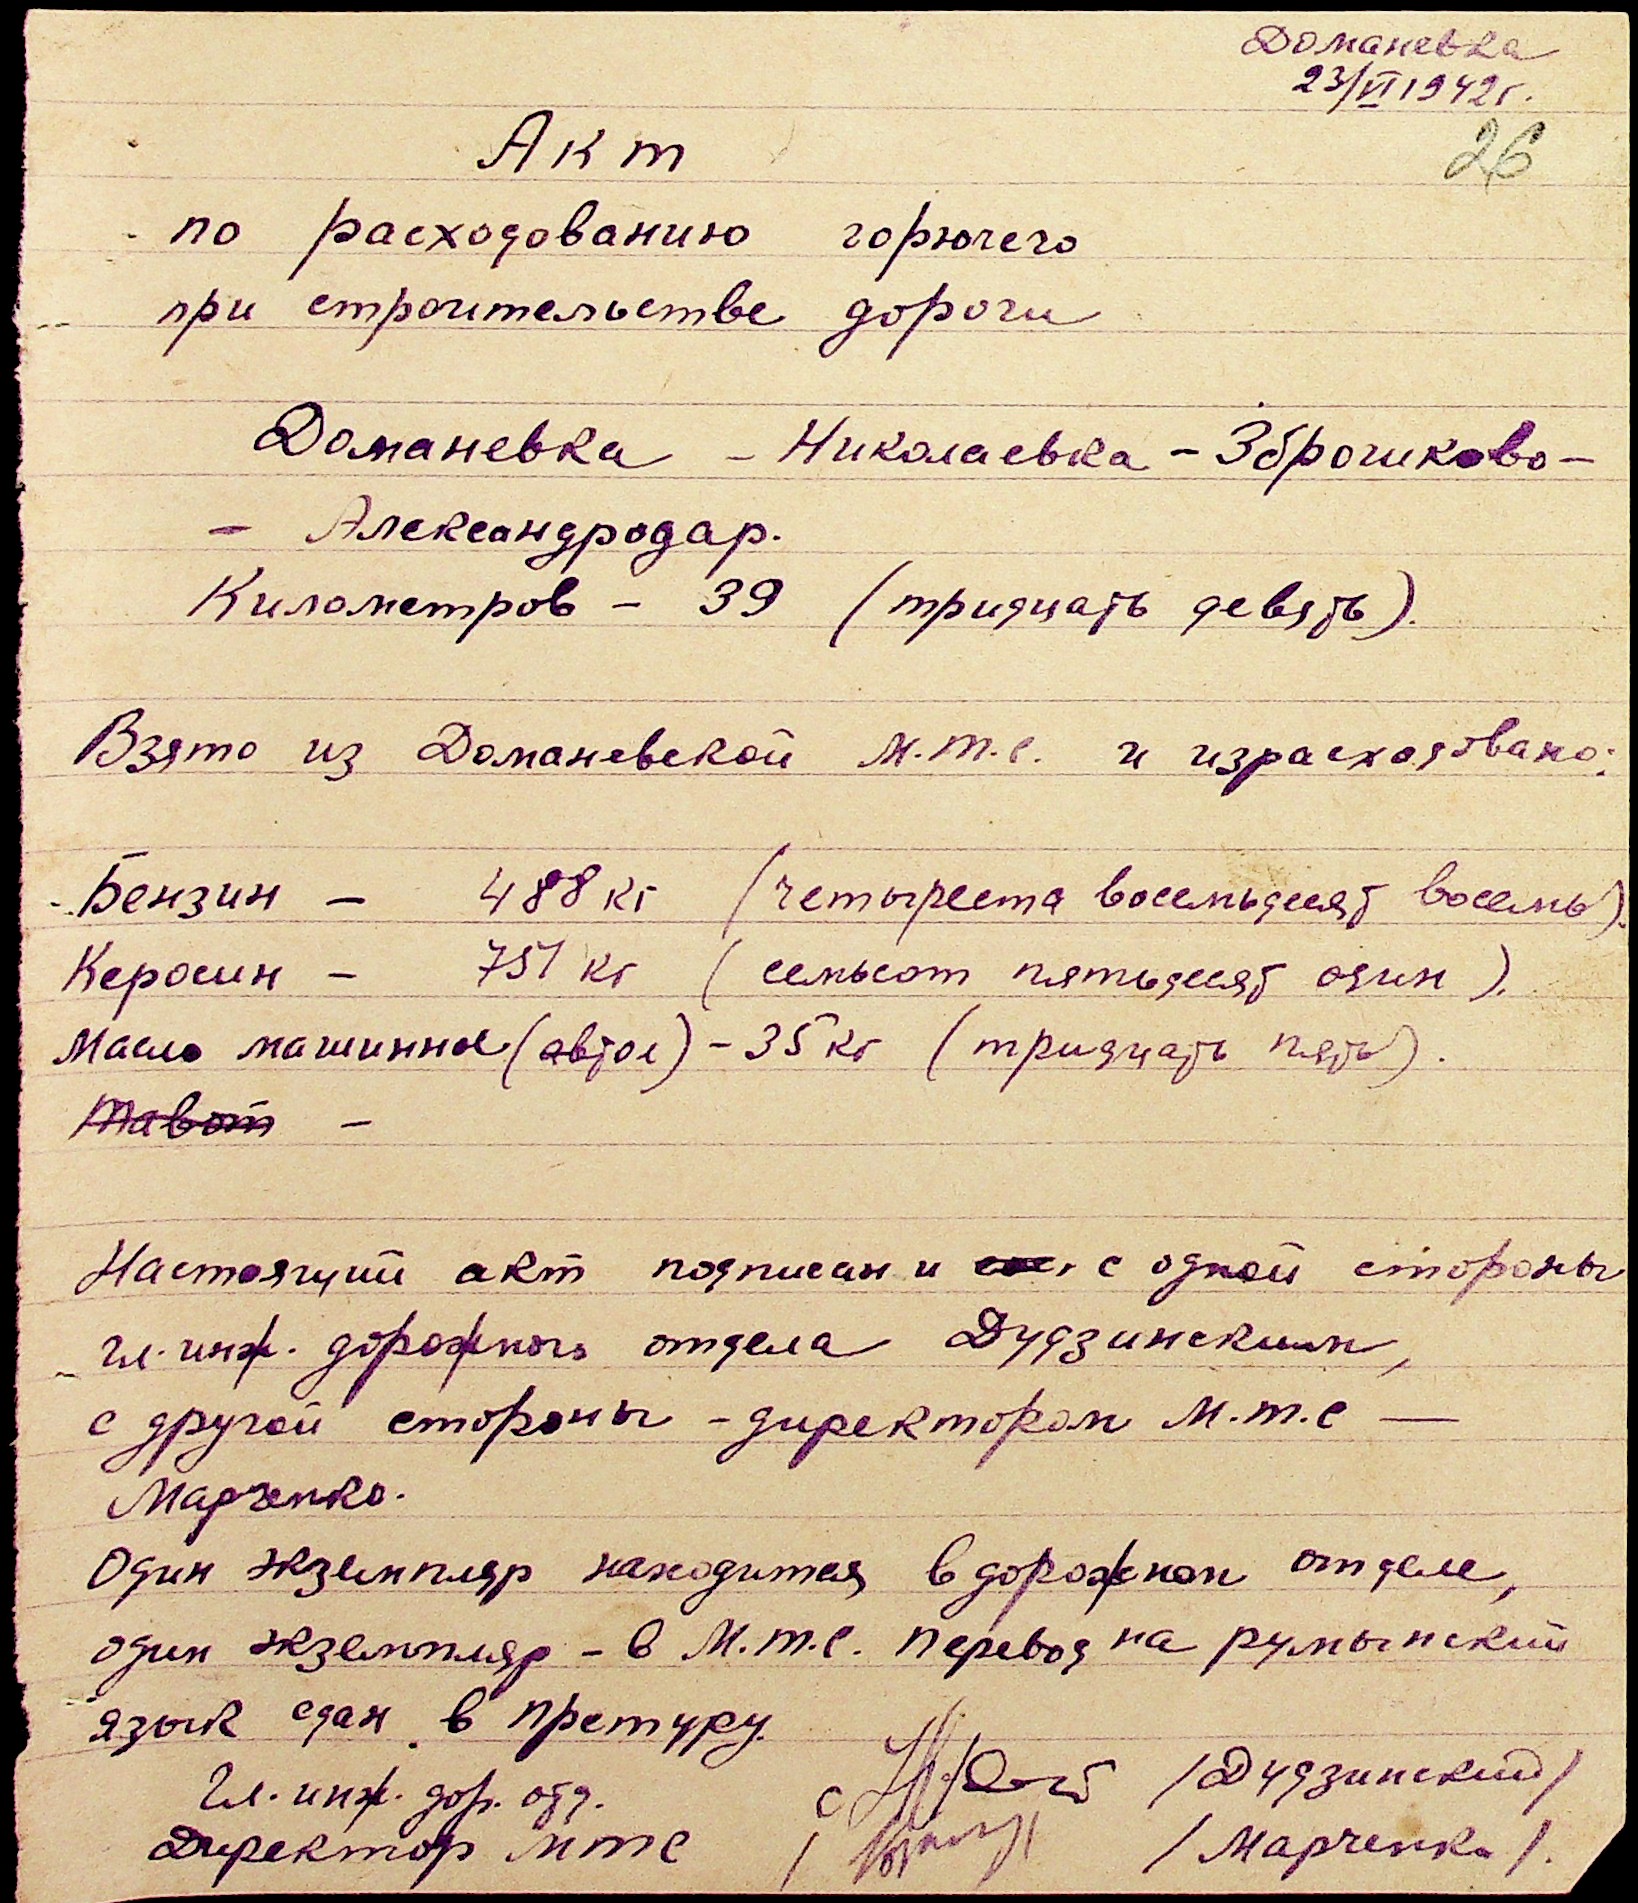 Доманевка
23/VI 1942 г.
26
Акт
по расходованию горючего
при строительстве дороги
Доманевка – Николаевка – Зброшиково –
– Александродар.
Километров – 39 (тридцать девять).
Взято из Доманевской М.Т.С. и израсходовано:
Бензин – 488 кг (четыреста восемьдесят восемь).
Керосин – 751 кг (семьсот пятьдесят один).
Масло машинное (автол) – 35 кг (тридцать пять).
Тавот –
Настоящий акт подписан и с одной стороны
гл. инж. дорожного отдела Дудзинским,
с другой стороны – директором М.Т.С —
Марченко.
Один экземпляр находится в дорожном отделе,
один экземпляр – в М.Т.С. Перевод на румынский
язык сдан в претуру.
Гл. инж. дор. отд. /Дудзинский/
Директор МТС /Марченко/.